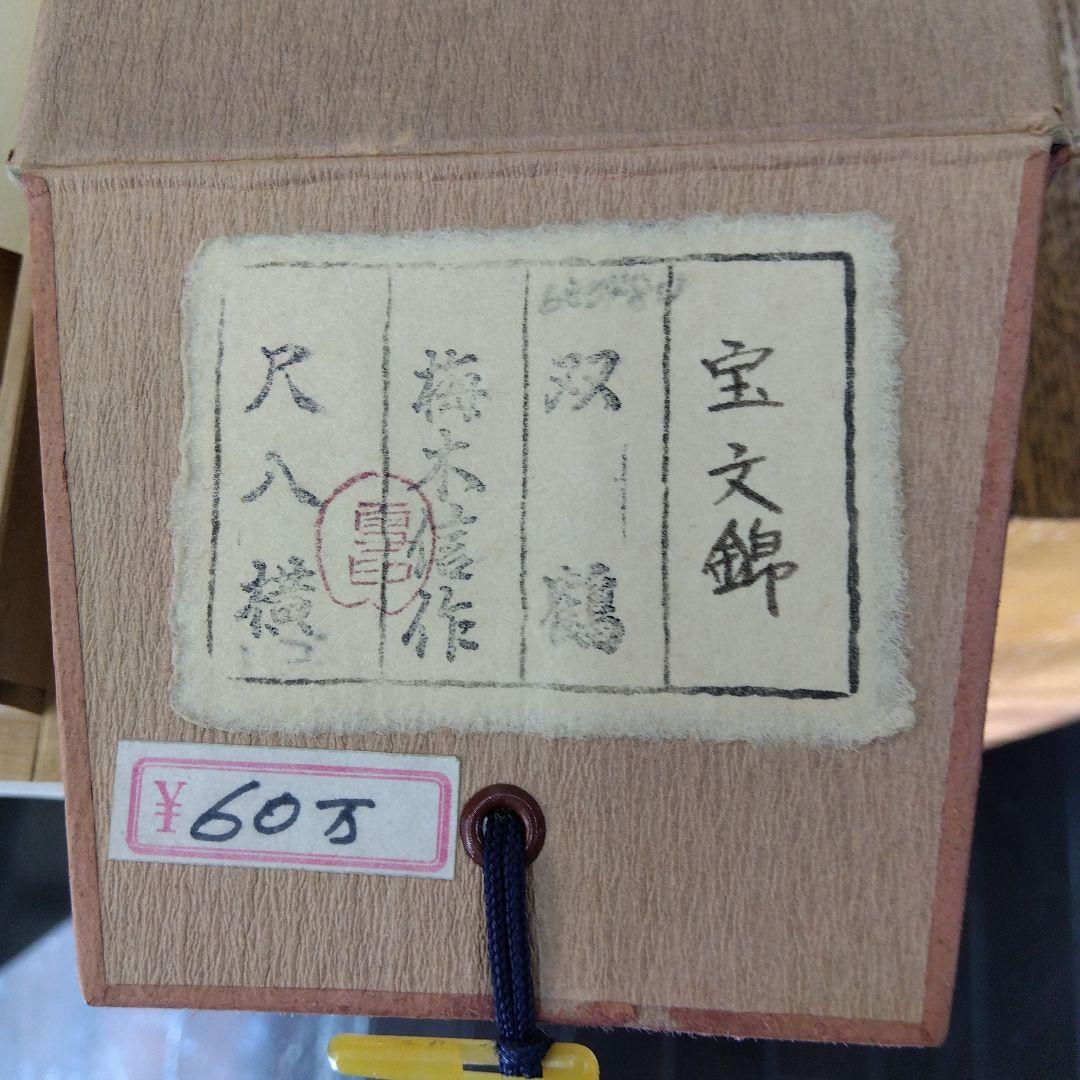 宝文錦
双鶴
梅木信作
尺八横
¥60万